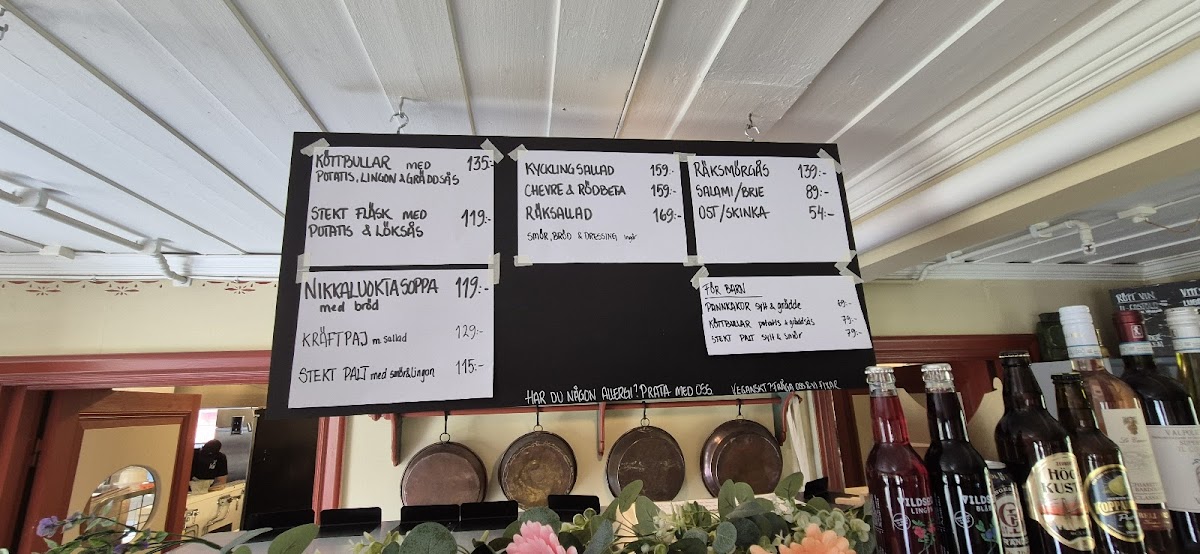 KÖTTBULLAR MED 135:-
POTATIS, LINGON & GRÄDDSÅS
STEKT FLÄSK MED 119:-
POTATIS & LÖKSÅS
NIKKALUOKTASOPPA 119:-
med bröd
KRÄFTPAJ m. sallad 129:-
STEKT PALT med smör & lingon 115:-
KYCKLINGSALLAD 159:-
CHEVRE & RÖDBETA 159:-
RÄKSALLAD 169:-
SMÖR, BRÖD & DRESSING ingår
RÄKSMÖRGÅS 139:-
SALAMI/BRIE 89:-
OST/SKINKA 54:-
FÖR BARN
PANNKAKOR sylt & grädde
KÖTTBULLAR potatis & gräddsås 79:-
STEKT PALT sylt & smör 79:-
HAR DU NÅGON ALLERGI? PRATA MED OSS. VEGANSKT? FRÅGA OSS & VI FIXAR
RÖTT VIN
VILDS
LINGON
VILDS
BLÅ
HÖG
KUST
KOPPAR
VALPOL